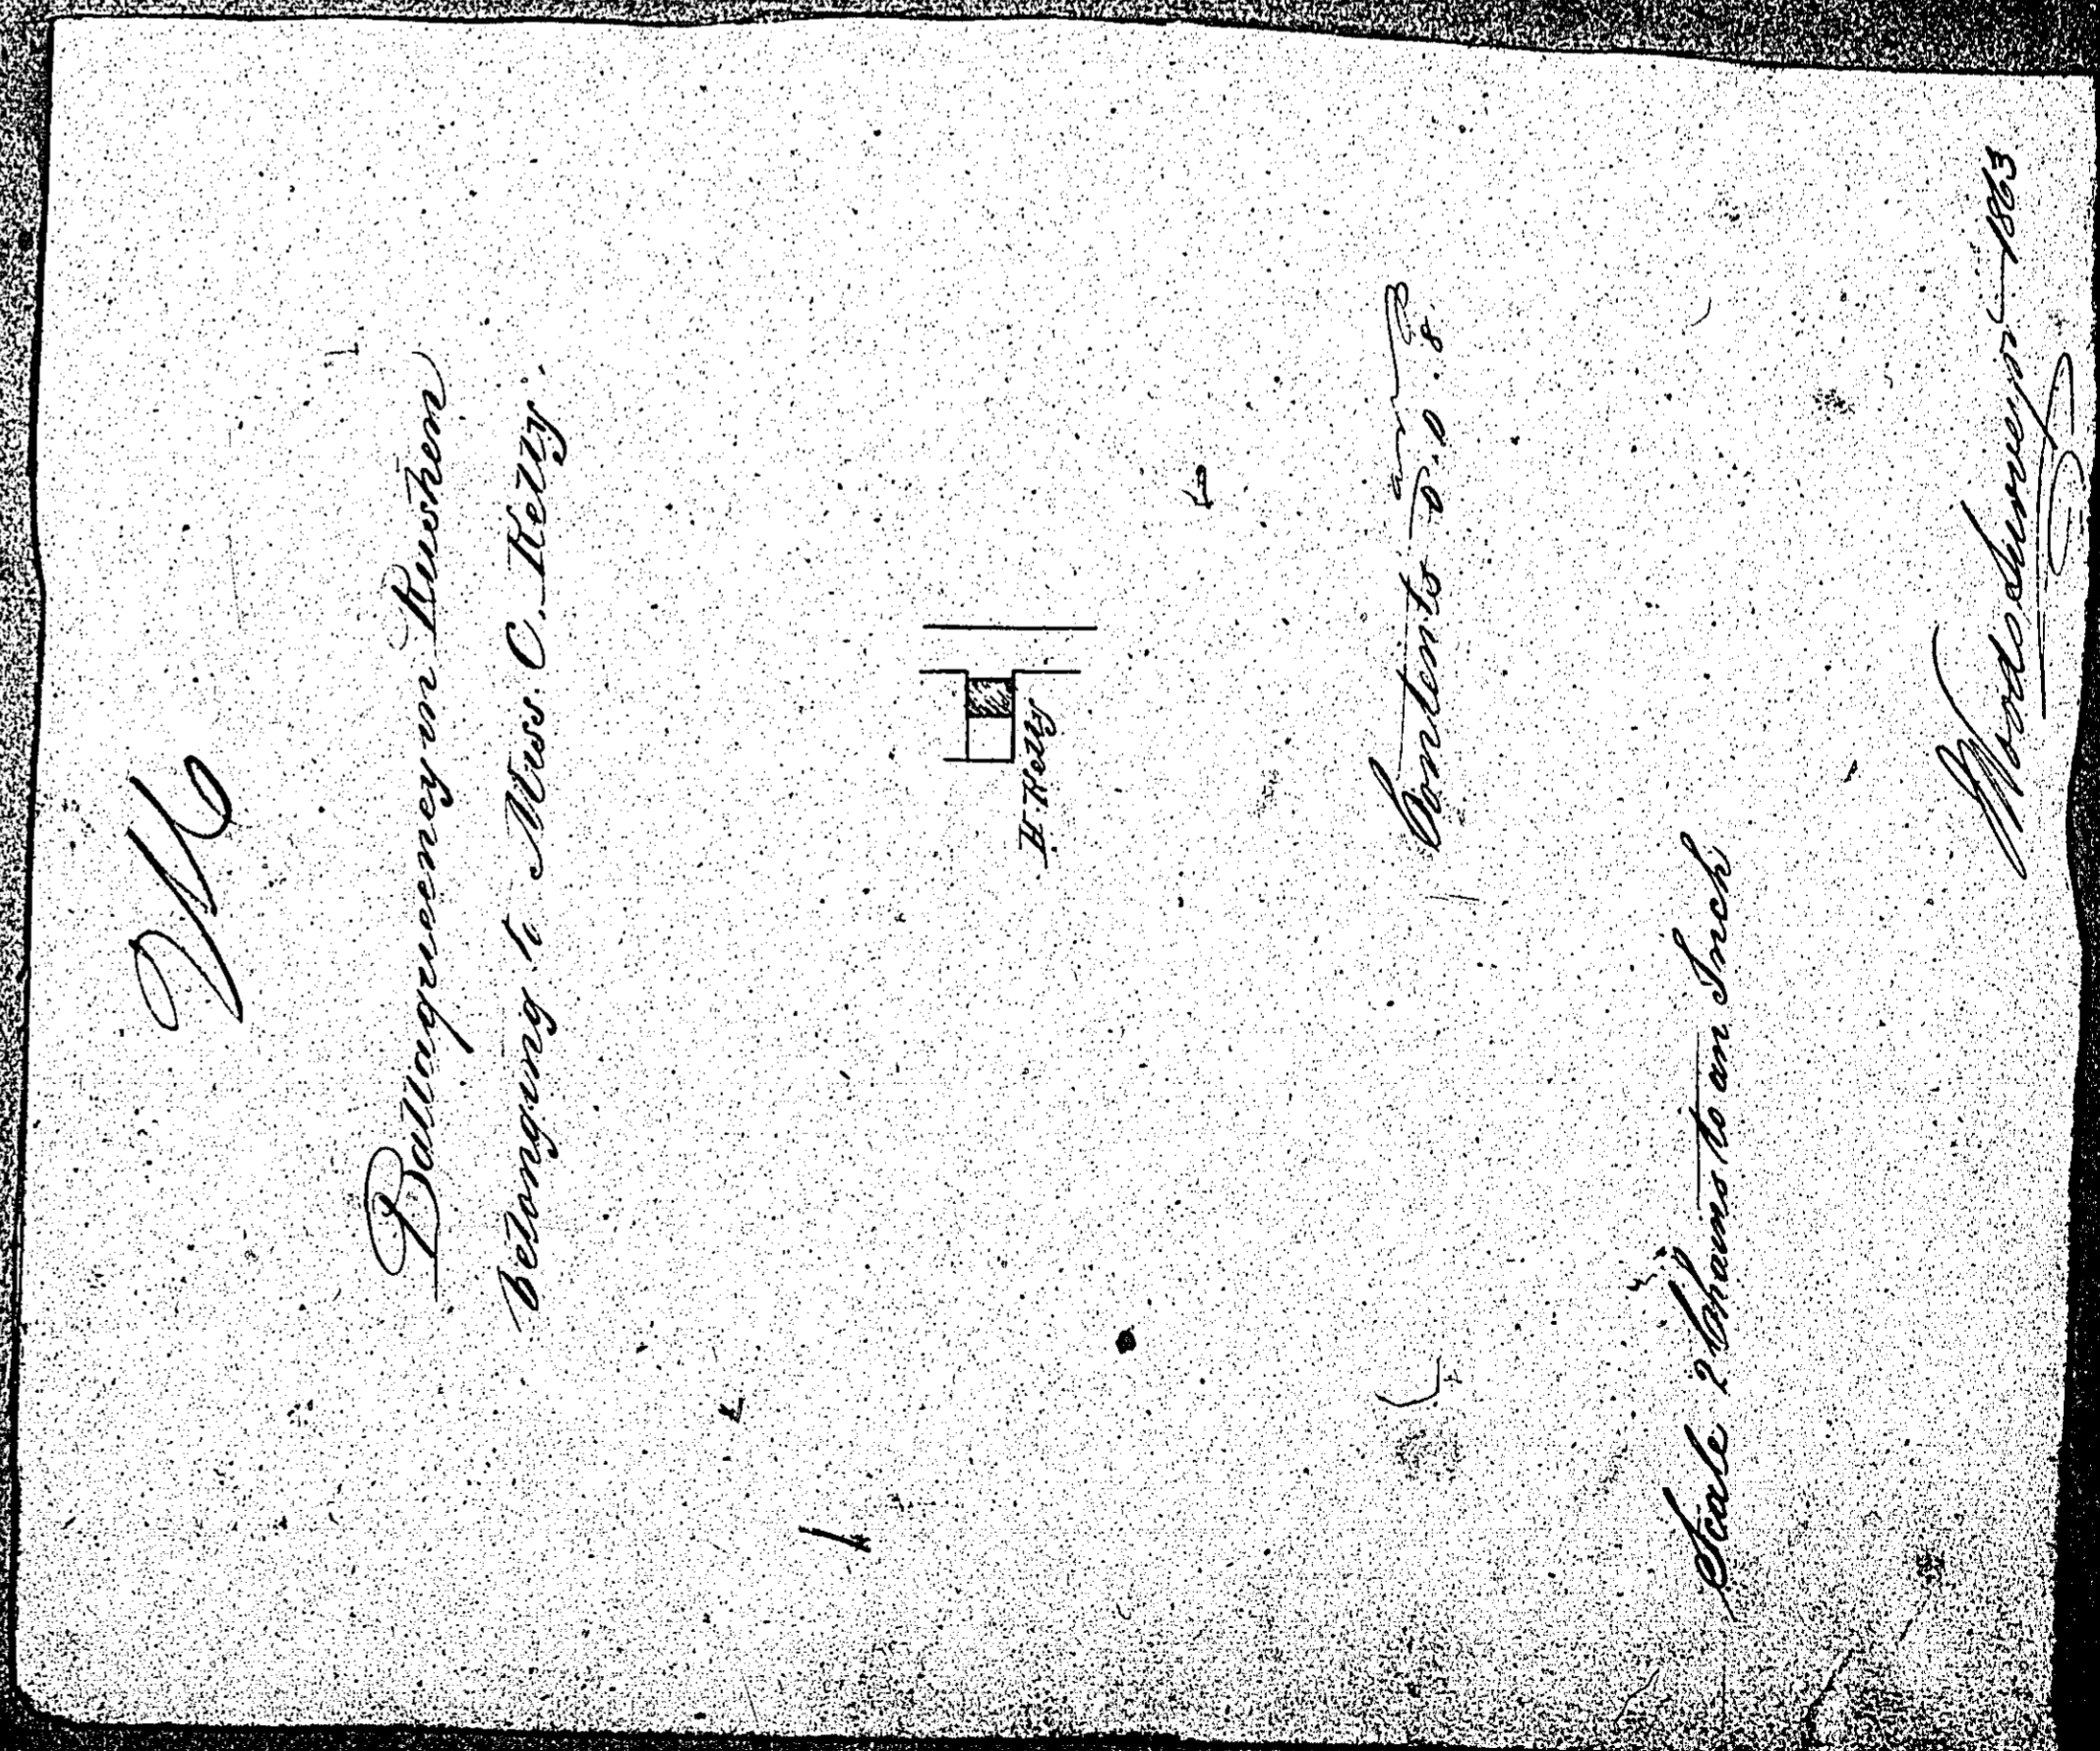 M
Ballaqueeney in Rushen
belonging to Miss. C. Kelly.
H. Kelly
Contents 0. 0. 8
Scale 2 Chains to an Inch
Woods Surveyor 1863